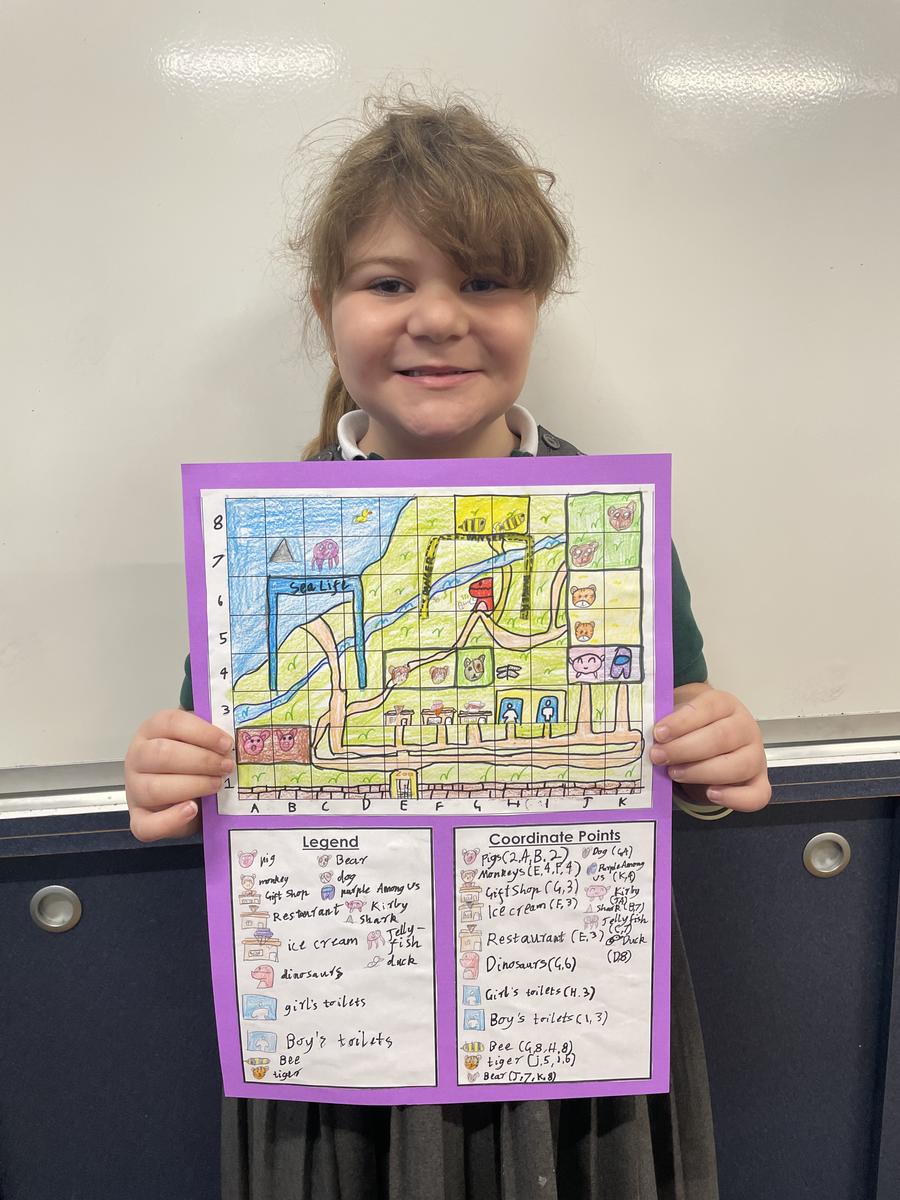 8
7
Sea Life
6
5
4
3
2
1
A B C D E F G H I J K
Legend
pig
Bear
monkey
dog
Gift Shop
purple Among Us
Restaurant
Kirby
shark
ice cream
Jelly-
fish
duck
dinosaurs
girl's toilets
Boy's toilets
Bee
tiger
Coordinate Points
Pigs (2,A,B,2)
Monkeys (E,4,F,4)
Gift Shop (G,3)
Ice cream (F,3)
Restaurant (E,3)
Dinosaurs (G,6)
Girl's toilets (H.3)
Boy's toilets (I,3)
Bee (G,8,H,8)
tiger (J,5,J,6)
Bear (J,7,K,8)
Dog (G4)
Purple Among
us (K,4)
Kirby
(J4)
Shark (B,7)
Jelly fish
(C,7)
Duck
(D8)